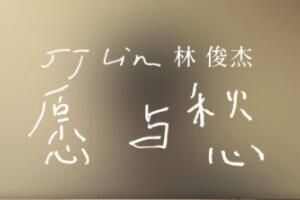 JJ Lin 林俊杰
愿与愁